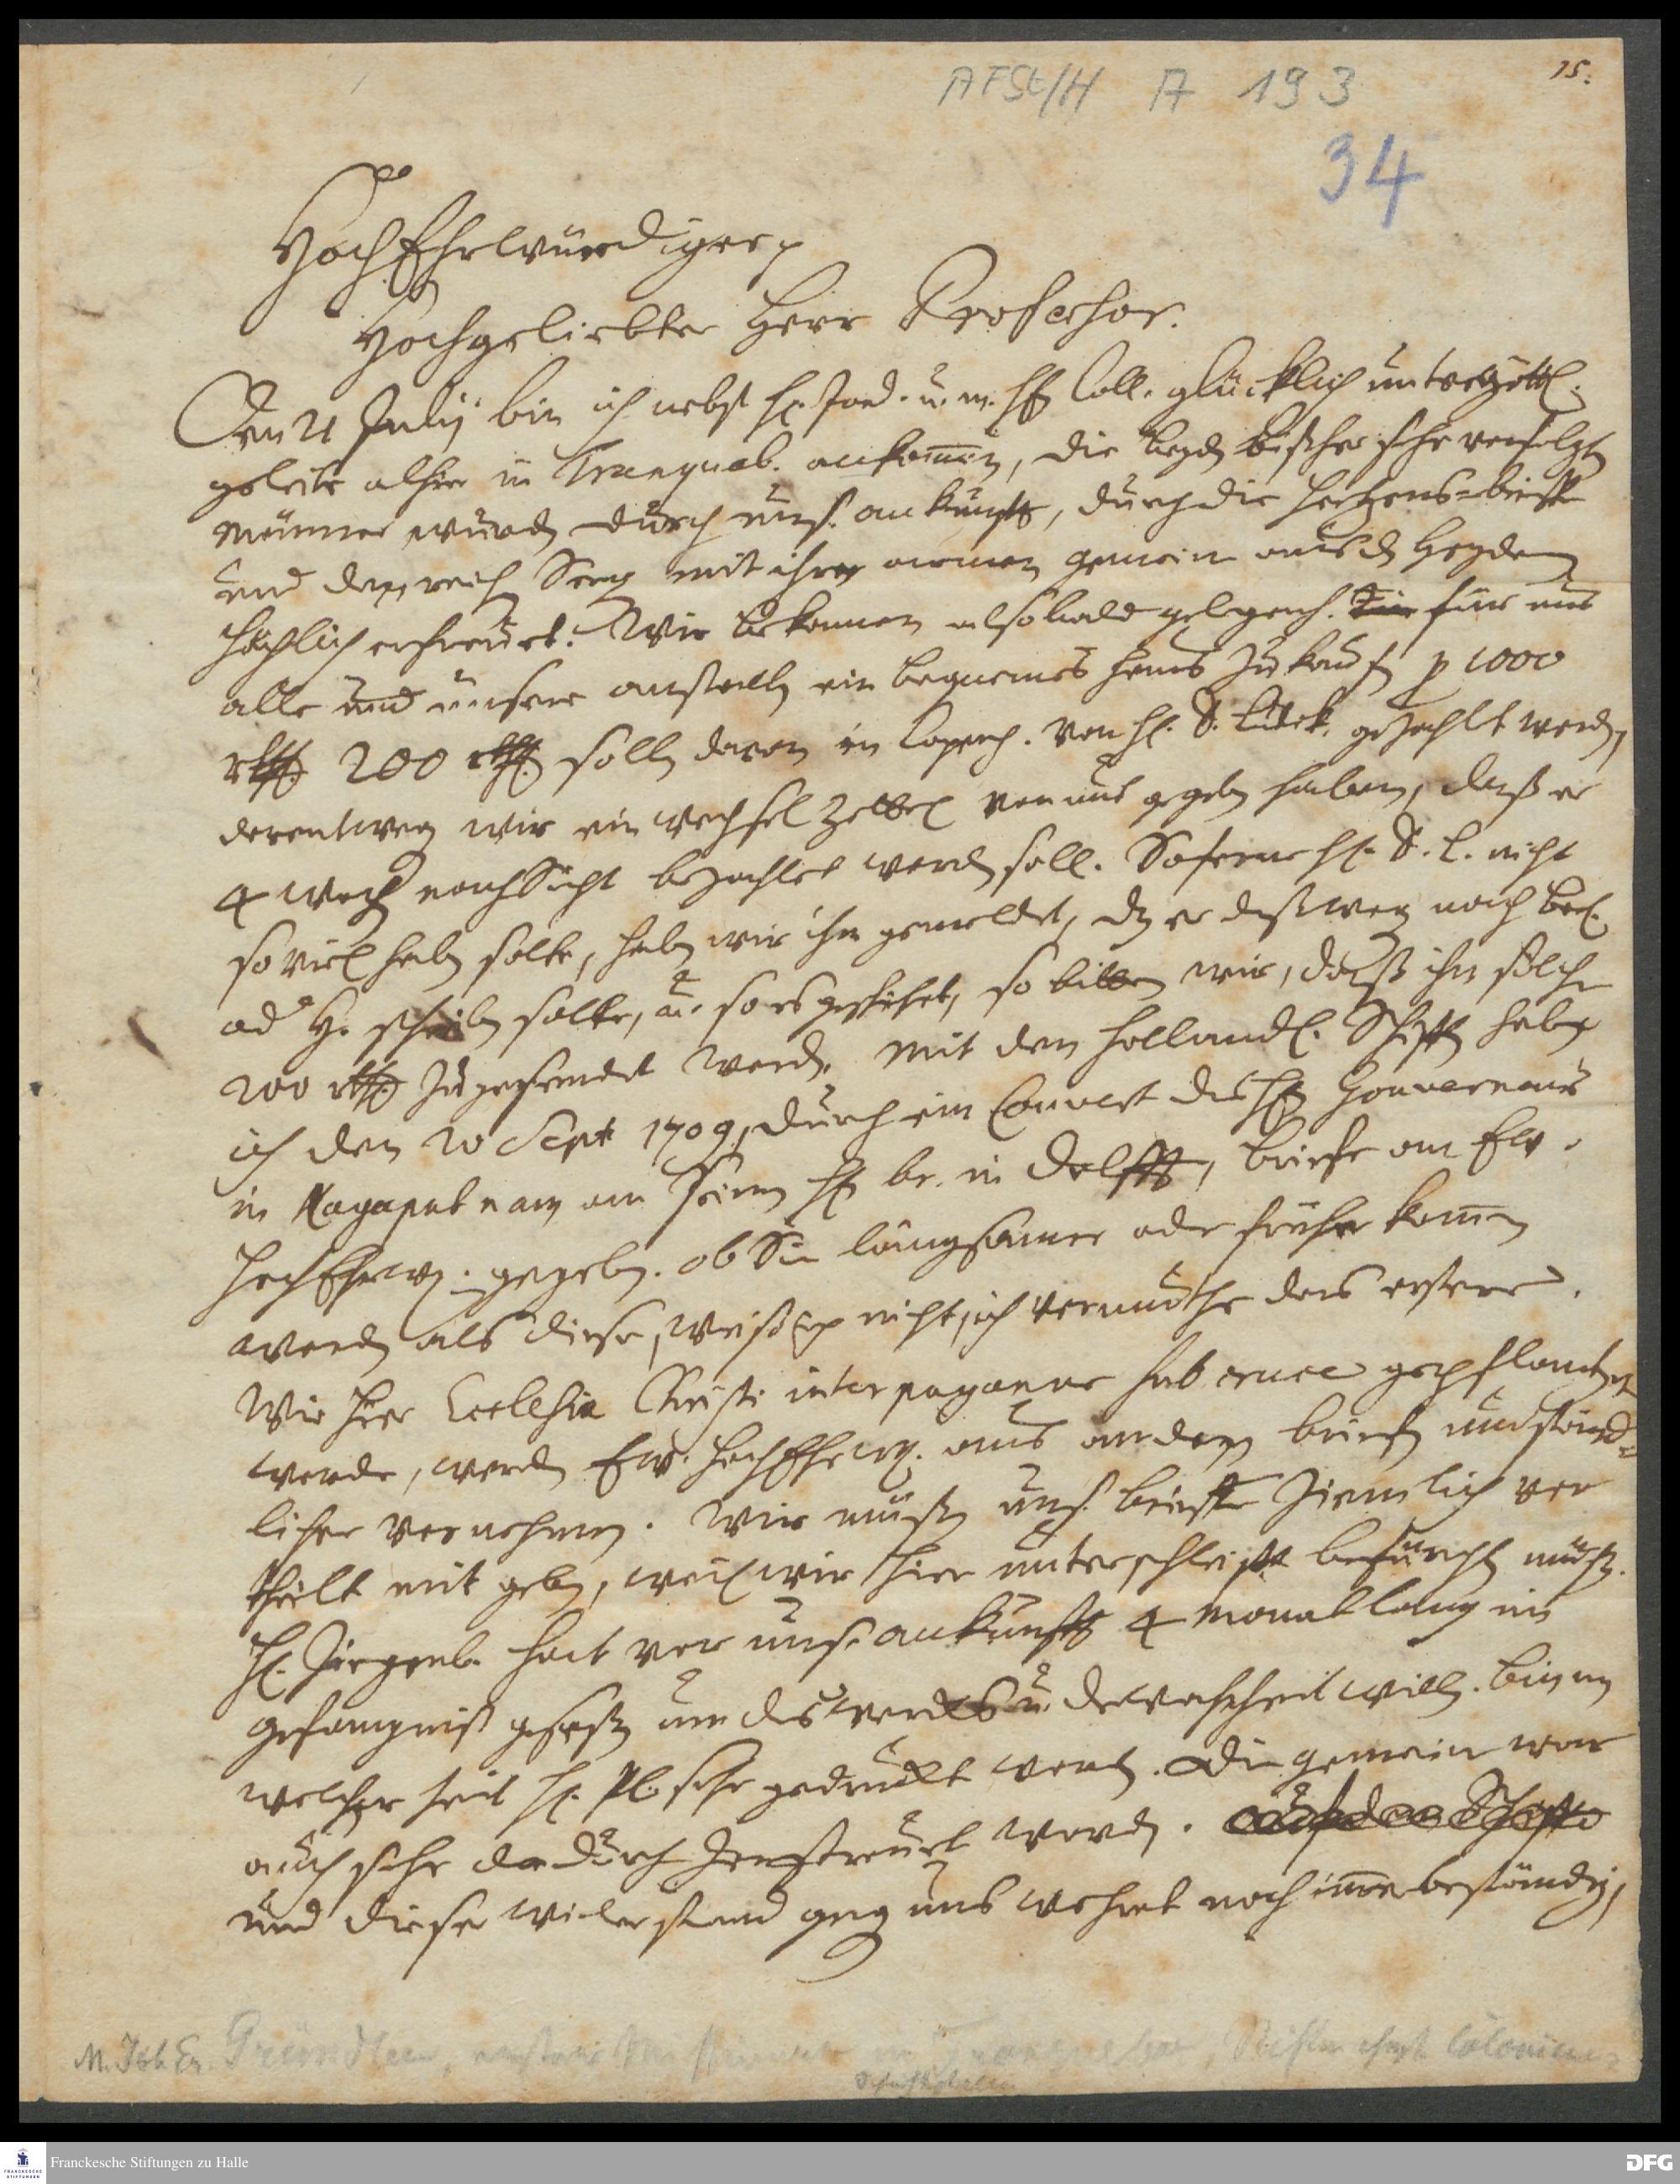 15.
AFSt/H A 193
34
HochEhrwürdiger p
Hochgeliebter Herr Professor.
Den 21 Julij bin ich nebst H. Jord. u. m. HE Coll. glücklich unter göttl.
geleite alhier in Tranquab. ankommen, die beyden bißher sehr verfolgten
Männer wurden durch uns. ankunfft, durch die Hertzens-brieffe
und den reichen Seegen mit ihrer armen gemeine aus den Heyden
höchlich erfreuet. Wir bekamen alsobald gelegenh. für uns
alle und unsere anstalten ein bequemes Haus zu kauffen p 1000
rthl. 200 rthl. sollen davon in Copenh. von H. D. Lütk. gezahlt werden,
derentwegen wir ein wechsel Zettel von uns gegeben haben, daß er
4 wochen nach Sicht bezahlet werden soll. Soferne H. D. L. nicht
so viel haben solte, haben wir ihm gemeldet, dz er deßwegen nach
ad H. schreiben solte, u. so es geschiehet, so bitten wir, daß ihm solche
200 rthl. zugesendet werden. Mit den Holländ. Schiffen habe
ich den 20 Sept 1709, durch ein Couvert des HEn Gouverneurs
in Nagapatnam an seinen HE br. in Delfft, briefe an Ew.
HochEhrw. gegeben. ob Sie langsamer oder früher kommen
werden als diese, weiß ich nicht, ich vermuthe das erstere.
Wie hier Ecclesia Christi inter paganos sub cruce gepflantzet
werde, werden Ew. HochEhrw. aus andern briefen umständ-
licher vernehmen. Wir müßen uns. briefe ziemlich ver
theilt mit geben, weil wir hier unterschleiff befürchten müßen.
H. Ziegenb. hat vor uns. ankunfft 4 Monat lang im
gefängniß geseßen um des wercks u. der wahrheit willen. binnen
welcher Zeit H. Pl. sehr gedruckt worden. Die gemeine war
auch sehr dadurch zerstreuet worden. auf dem Schiffe
und dieser widerstand gegen uns wehret noch immer beständig,
M. Joh. Er. Gründler,
Franckesche Stiftungen zu Halle
DFG